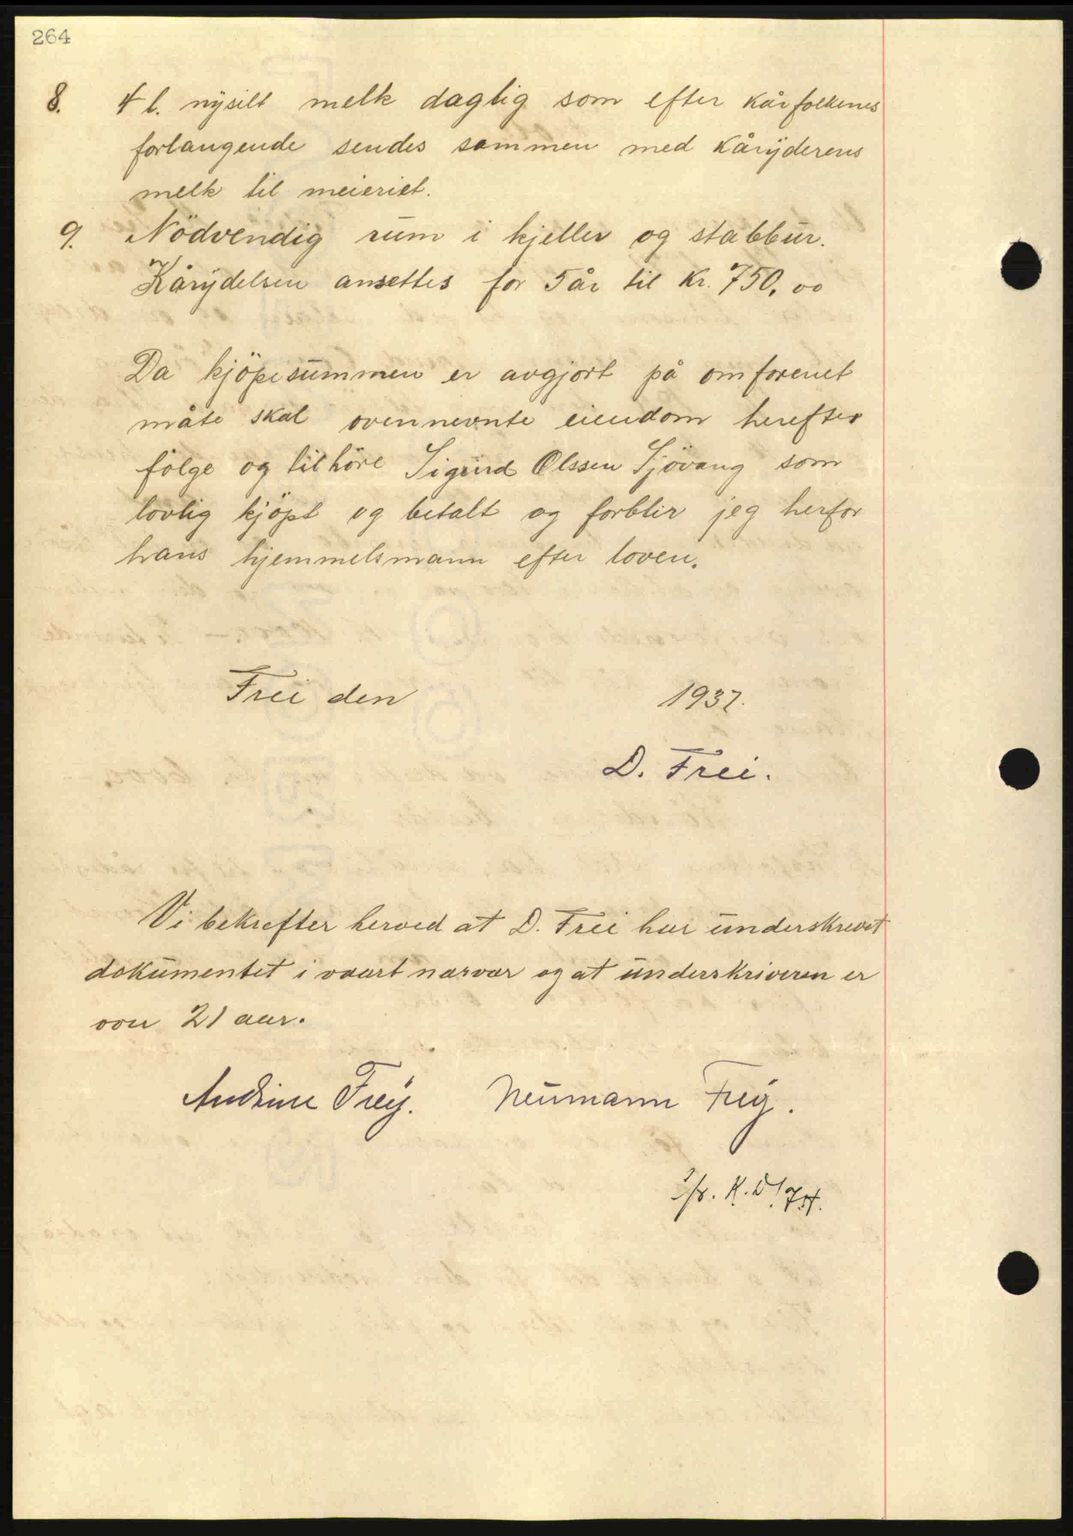 264
8. 4 l. nysilt melk daglig som efter kårfolkenes
forlangende sendes sammen med kåryderens
melk til meieriet.
9. Nödvendig rum i kjeller og stabbur.
Kårydelsen ansettes for 5 år til kr. 750,00
Da kjöpesummen er avgjort på omforenet
måte skal ovennevnte eiendom herefter
følge og tilhöre Sigurd Olssen Sjövang som
lovlig kjöpt og betalt og forblir jeg herfor
hans hjemmelsmann efter loven.
Frei den 1937.
D. Frei.
Vi bekrefter herved at D. Frei har underskrevet
dokumentet i vaart nærvær og at underskriveren er
over 21 aar.
Andrine Frey. Neumann Frey.